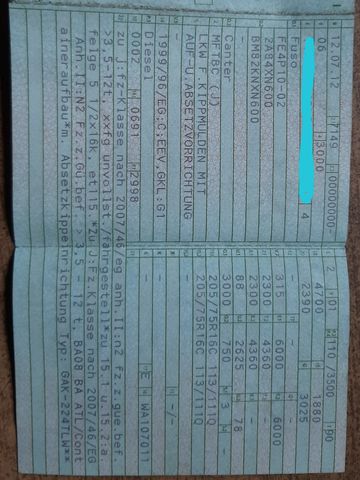 12.07.12 7749 00000000-
06 3000
Fuso 4
FE4P10-02
2A84XN600
BM82KNXN600
Canter
MFTBC (J)
LKW F.KIPPMULDEN MIT
AUF-U.ABSETZVORRICHTUNG
-
1999/96/EG;C;EEV,GKL:G1
Diesel
0002 0691 2998
2 01 110 /3500 90
4700 1880
2390 3025
-
315 6000 6000
2300 4360 -
2300 4360 -
88 2635 78
3000 750 3
205/75R16C 113/111Q
205/75R16C 113/111Q
-
- -/-
E WA107011
-
zu J:fz-Klasse nach 2007/46/eg anh.II:n2 fz.z.gue.bef.
>3,5-12t, xxfg unvollst./fahrgestell*zu 15.1 u.15.2:a.
felge 5 1/2x16k, et115 *Zu J:Fz.Klasse nach 2007/46/EG
Anh.II:N2 Fz.z.Gü.bef.> 3,5 - 12 t, BA08 BA ATL/Cont
aineraufbau*m. Absetzkippeinrichtung Typ: GAK-224TLW**